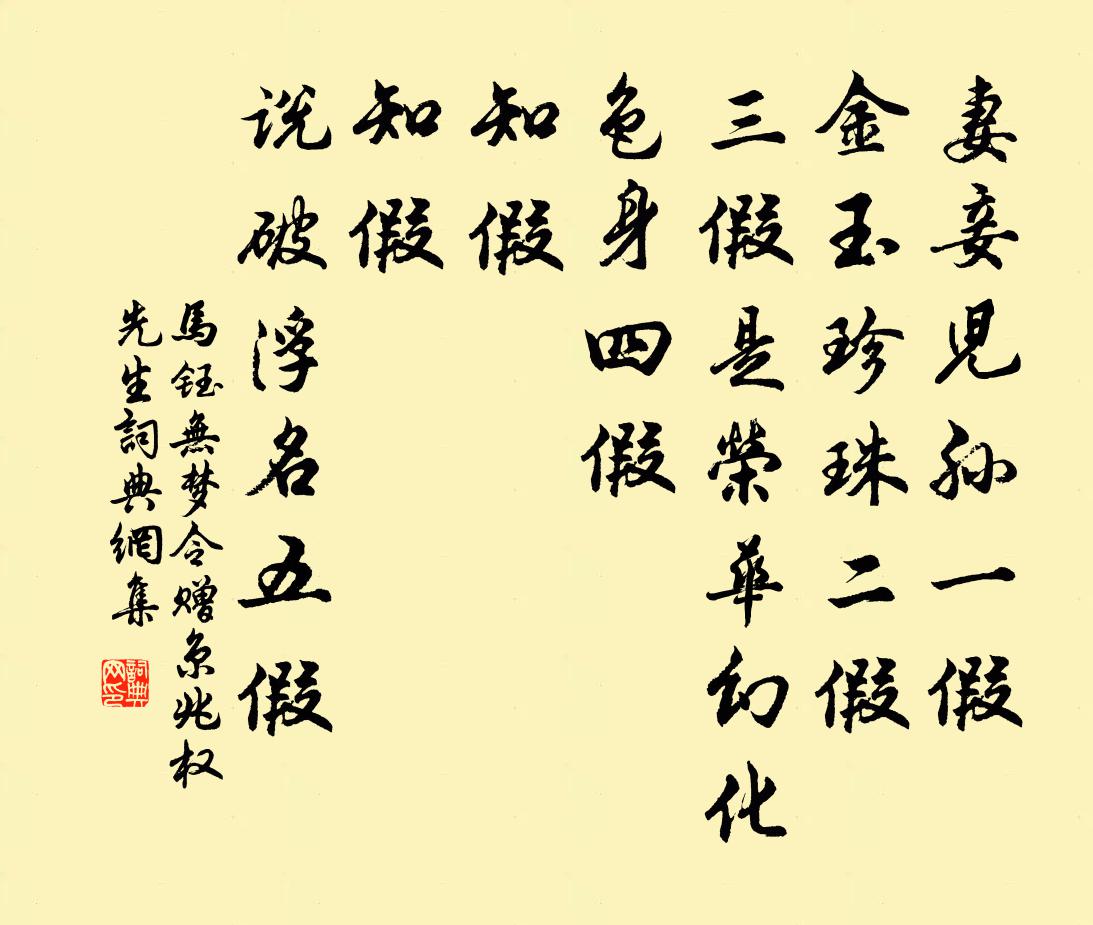 妻妾児孙一假
金玉珍珠二假
三假是榮華幻化
色身四假
知假
知假
说破浮名五假
馬鈺無梦令赠京兆权
先生詞典網集
詞典网印